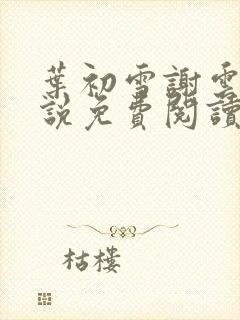 葉初雪謝雲
說免費閱讀
枯樓